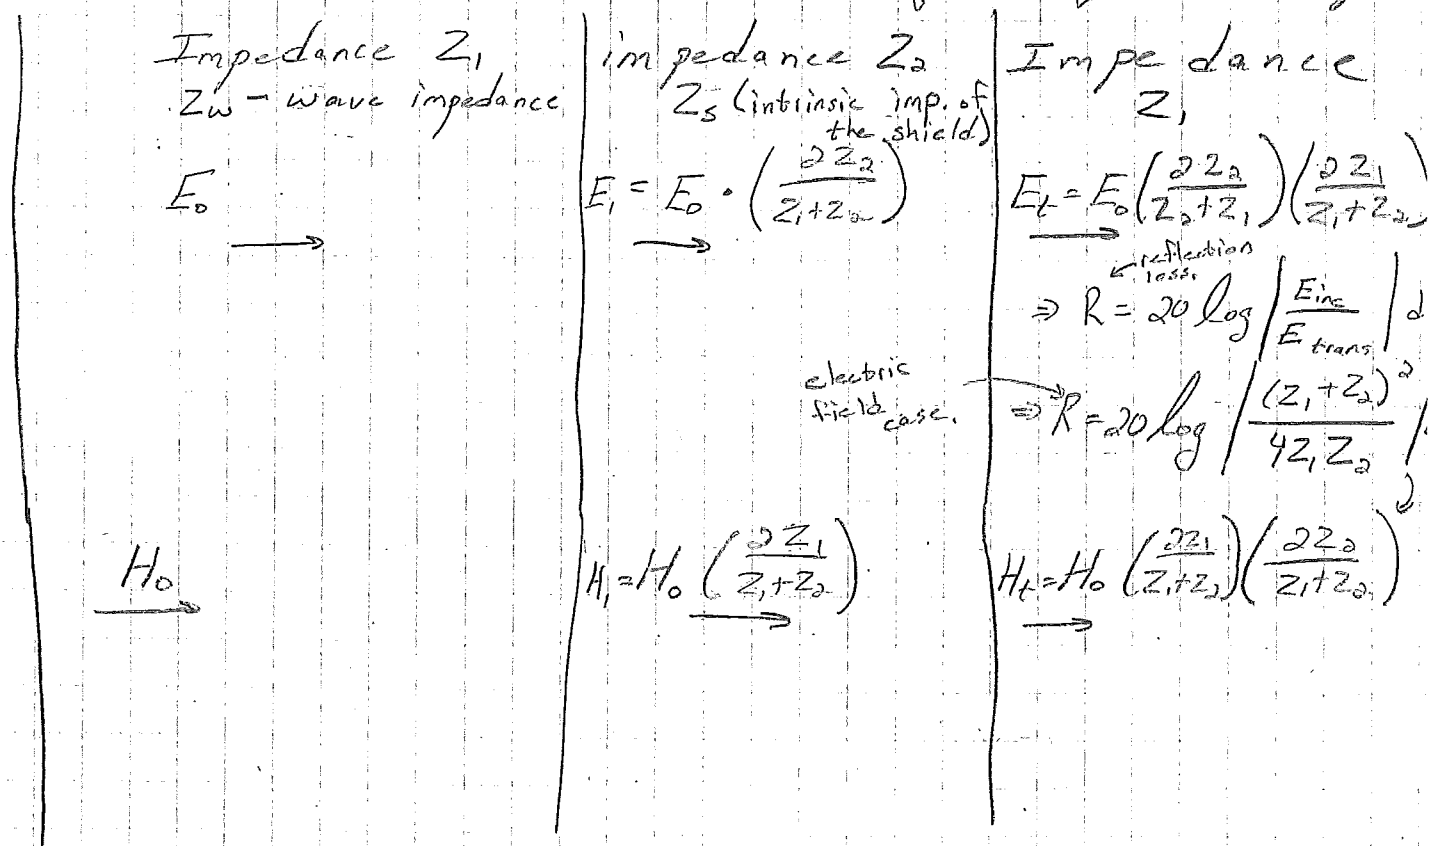 Impedance Z₁
Zw - wave impedance
E₀
H₀
impedance Z₂
Zs (intrinsic imp. of
the shield)
E₁ = E₀ · (2Z₂ / Z₁+Z₂)
electric
field
case.
H₁ = H₀ (2Z₁ / Z₁+Z₂)
Impedance
Z₁
Et = E₀ (2Z₂ / Z₂+Z₁) (2Z₁ / Z₁+Z₂)
reflection
loss.
⇒ R = 20 log | Einc / E trans | d
⇒ R = 20 log | (Z₁+Z₂)² / 4Z₁Z₂ |
Ht = H₀ (2Z₁ / Z₁+Z₂) (2Z₂ / Z₁+Z₂)